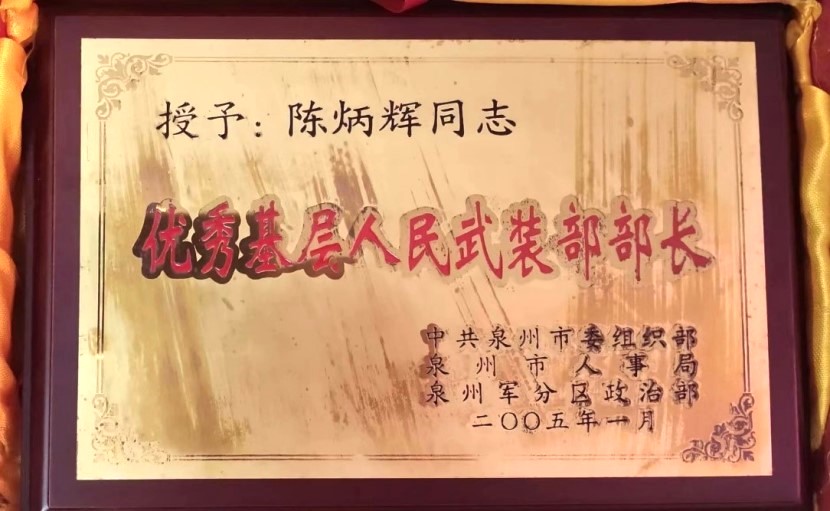 授予：陈炳辉同志
优秀基层人民武装部部长
中共泉州市委组织部
泉州市人事局
泉州军分区政治部
二〇〇五年一月